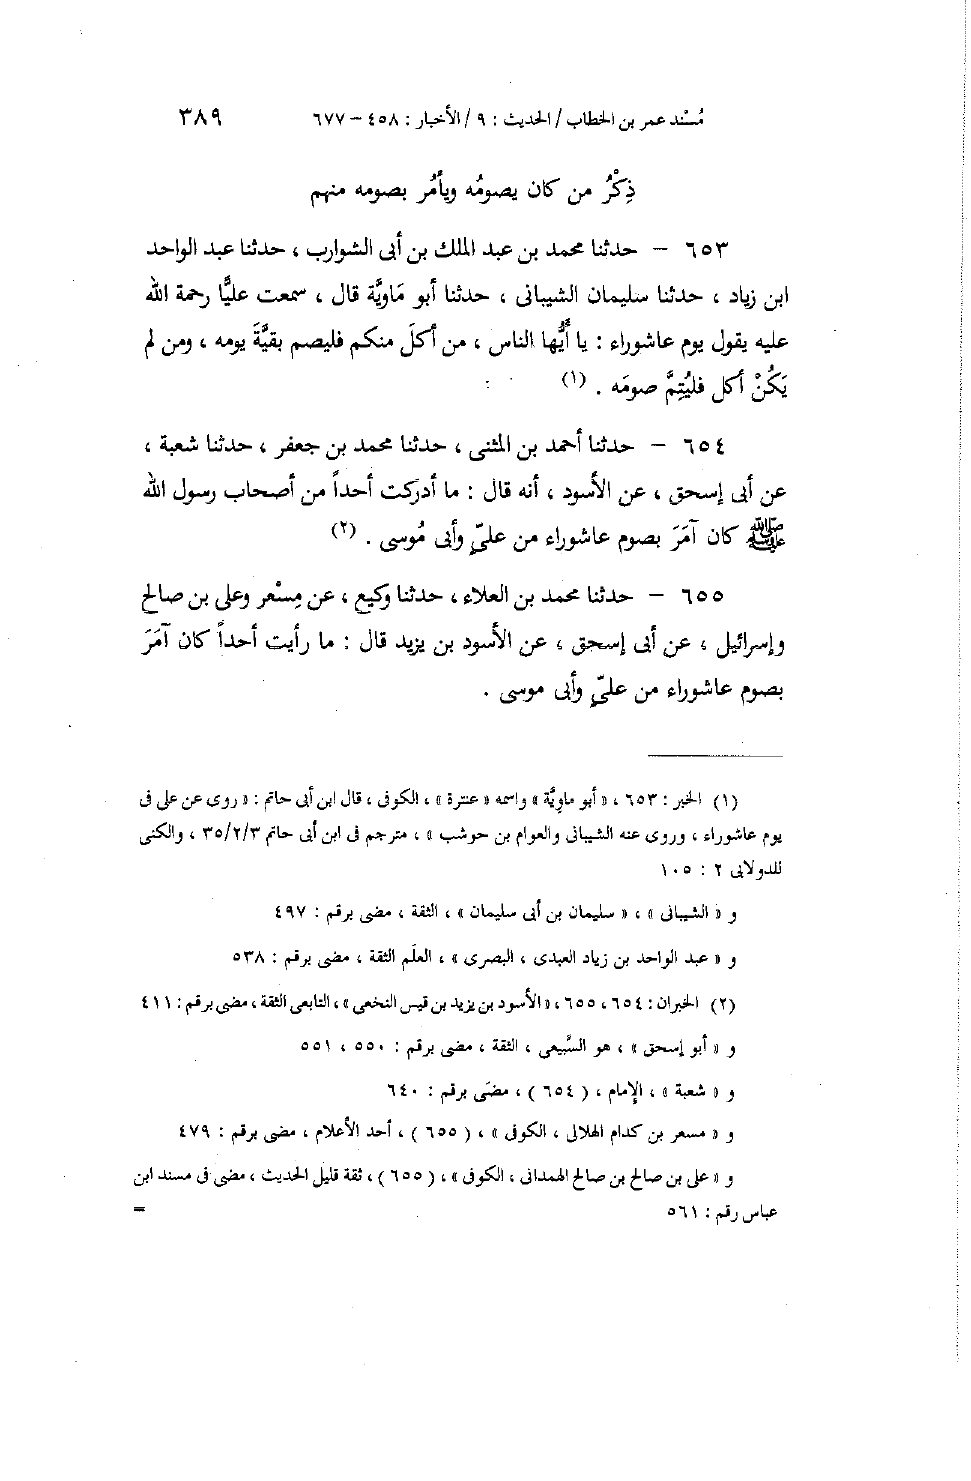 مُسْند عمر بن الخطاب / الحديث : ٩ / الأخبار : ٤٥٨ – ٦٧٧ ٣٨٩
ذِكْرُ من كان يصومُه ويأمُر بصومه منهم
٦٥٣ – حدثنا محمد بن عبد الملك بن أبى الشوارب ، حدثنا عبد الواحد
ابن زياد ، حدثنا سليمان الشيبانى ، حدثنا أبو مَاوِيَّة قال ، سمعت عليًّا رحمة الله
عليه يقول يوم عاشوراء : يا أيُّها الناس ، من أكلَ منكم فليصم بقيَّةَ يومه ، ومن لم
يَكُنْ أكل فليُتِمَّ صومَه . (١)
٦٥٤ – حدثنا أحمد بن المثنى ، حدثنا محمد بن جعفر ، حدثنا شعبة ،
عن أبى إسحق ، عن الأسود ، أنه قال : ما أدركت أحداً من أصحاب رسول الله
ﷺ كان آمَرَ بصوم عاشوراء من علىٍّ وأبى مُوسى . (٢)
٦٥٥ – حدثنا محمد بن العلاء ، حدثنا وكيع ، عن مِسْعر وعلى بن صالح
وإسرائيل ، عن أبى إسحق ، عن الأسود بن يزيد قال : ما رأيت أحداً كان آمَرَ
بصوم عاشوراء من علىٍّ وأبى موسى .
(١) الخبر : ٦٥٣ ، « أبو ماوِيَّة » واسمه « عنترة » ، الكوفى ، قال ابن أبى حاتم : « روى عن على فى
يوم عاشوراء ، وروى عنه الشيبانى والعوام بن حوشب » ، مترجم فى ابن أبى حاتم ٣/٢/٣٥ ، والكنى
للدولابى ٢ : ١٠٥
و « الشيبانى » ، « سليمان بن أبى سليمان » ، الثقة ، مضى برقم : ٤٩٧
و « عبد الواحد بن زياد العبدى ، البصرى » ، العلَم الثقة ، مضى برقم : ٥٣٨
(٢) الخبران : ٦٥٤ ، ٦٥٥ ، « الأسود بن يزيد بن قيس النخعى » ، التابعى الثقة ، مضى برقم : ٤١١
و « أبو إسحق » ، هو السَّبيعى ، الثقة ، مضى برقم : ٥٥٠ ، ٥٥١
و « شعبة » ، الإمام ، ( ٦٥٤ ) ، مضَى برقم : ٦٤٠
و « مسعر بن كدام الهلالى ، الكوفى » ، ( ٦٥٥ ) ، أحد الأعلام ، مضى برقم : ٤٧٩
و « على بن صالح بن صالح الهمدانى ، الكوفى » ، ( ٦٥٥ ) ، ثقة قليل الحديث ، مضى فى مسند ابن
عباس رقم : ٥٦١ =